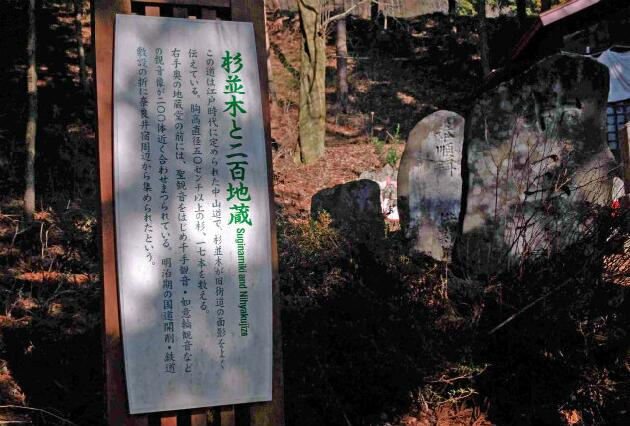 杉並木と二百地蔵
Suginamiki and Nihyakujizo
この道は江戸時代に定められた中山道で、杉並木が旧街道の面影をよく
伝えている。胸高直径五〇センチ以上の杉、一七本を数える。
右手奥の地蔵堂の前には、聖観音をはじめ千手観音・如意輪観音など
の観音像が二〇〇体近く合わせまつられている。明治期の国道開削・鉄道
敷設の折に奈良井宿周辺から集められたという。